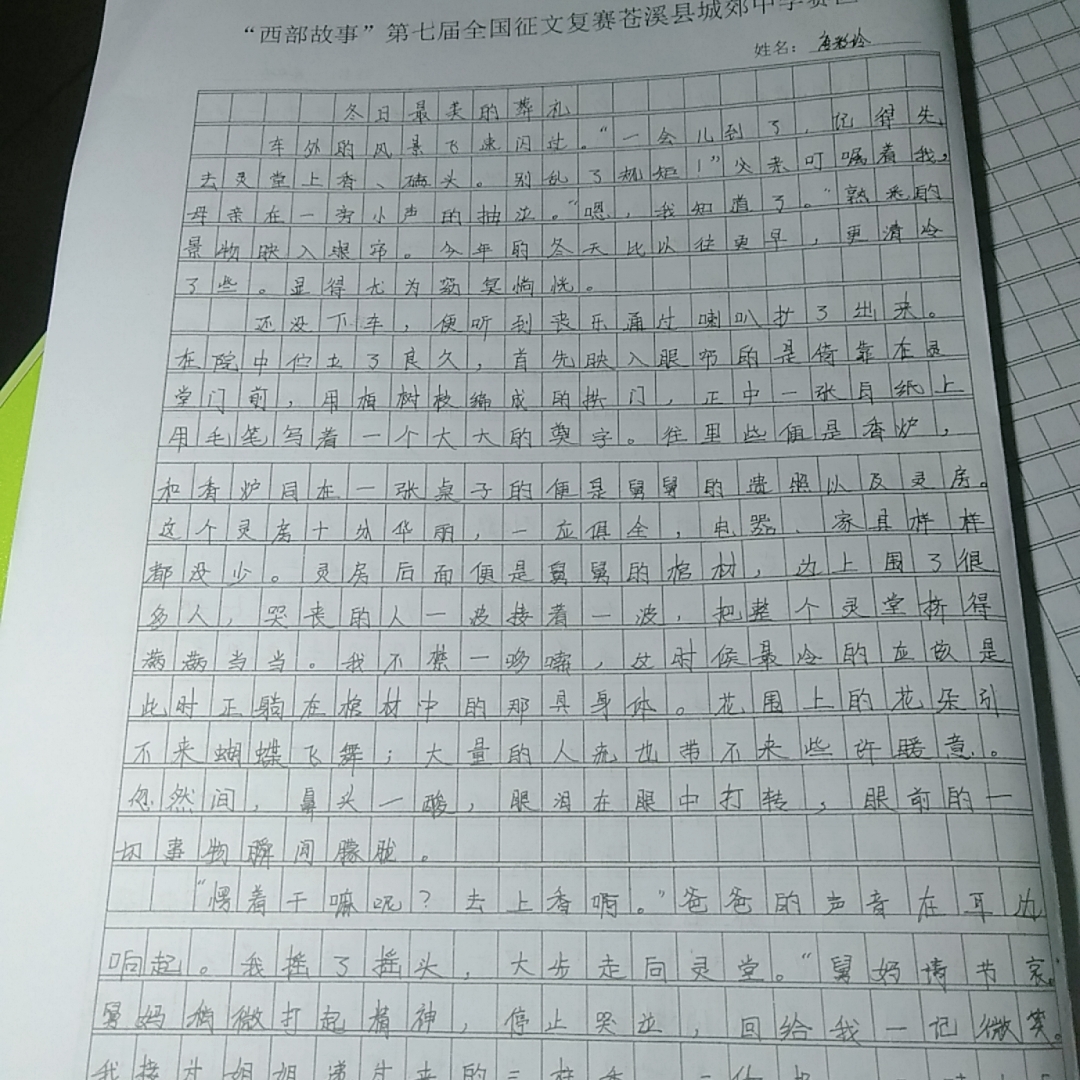 “西部故事”第七届全国征文复赛苍溪县城郊中学赛区
姓名：
冬日最美的葬礼
车外的风景飞速闪过。“一会儿到了，记得先
去灵堂上香、磕头。别乱了规矩！”父亲叮嘱着我，
母亲在一旁小声的抽泣。“嗯，我知道了。”熟悉的
景物映入眼帘。今年的冬天比以往更早，更清冷
了些。显得尤为窈冥惝恍。
还没下车，便听到丧乐通过喇叭扩了出来。
在院中伫立了良久，首先映入眼帘的是倚靠在灵
堂门前，用柏树枝编成的拱门，正中一张白纸上
用毛笔写着一个大大的奠字。往里些便是香炉，
和香炉同在一张桌子的便是舅舅的遗照以及灵房。
这个灵房十分华丽，一应俱全，电器、家具样样
都没少。灵房后面便是舅舅的棺材，边上围了很
多人，哭丧的人一波接着一波，把整个灵堂挤得
满满当当。我不禁一哆嗦，这时候最冷的应该是
此时正躺在棺材中的那具身体。花圈上的花朵引
不来蝴蝶飞舞；大量的人流也带不来些许暖意。
忽然间，鼻头一酸，眼泪在眼中打转，眼前的一
切事物瞬间朦胧。
“愣着干嘛呢？去上香啊。”爸爸的声音在耳边
响起。我摇了摇头，大步走向灵堂。“舅妈请节哀。”
舅妈稍微打起精神，停止哭泣，回给我一记微笑。
我接过姐姐递过来的三柱香，